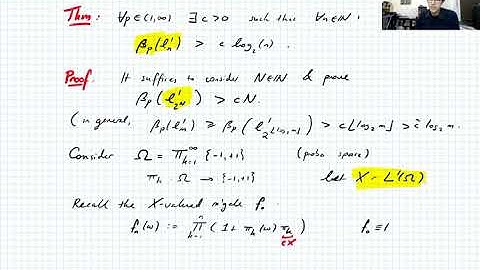 Thm: ∀p∈(1,∞) ∃ c>0 such that ∀n∈ℕ:
βp(ℓ¹ₙ) > c log₂(n).
Proof. It suffices to consider N∈ℕ & prove
βp(ℓ¹_{2^N}) > cN.
(in general, βp(ℓ¹ₘ) ≥ βp(ℓ¹_{2^{⌊log₂ m⌋}}) > c⌊log₂ m⌋ > c̃ log₂ m.
Consider Ω = Π_{k=1}^∞ {-1,+1} (proba space)
πₖ: Ω → {-1,+1} let X = L¹(Ω)
Recall the X-valued m'gale f.
fₙ(ω) := Π_{k=1}^n (1 + πₖ(ω) πₖ) f₀≡1
∈X